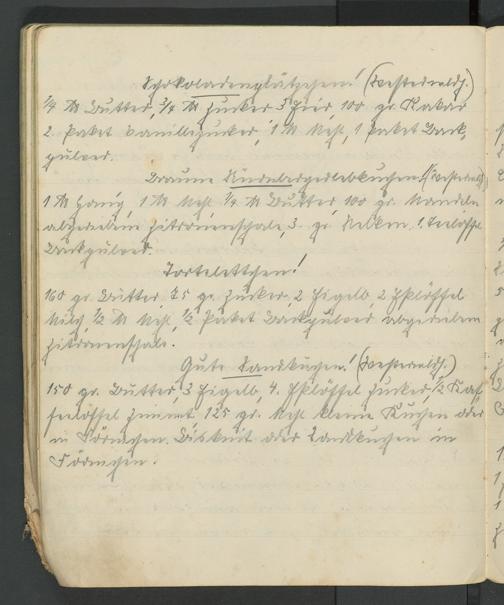 Schokoladenplätzchen! (Westerwald).
1/4 ℔ Butter, 3/4 ℔ Zucker 3 Eier, 100 gr. Kakao
2 Paket Vanillezucker, 1 ℔ Mehl, 1 Paket Back-
pulver.
Braune Nürnbergerlebkuchen! (Westerwald)
1 ℔ Honig, 1 ℔ Mehl 1/4 ℔ Butter, 100 gr. Mandeln
abgeriebene Zitronenschale, 3 gr. Nelken. 1 Teelöffel
Backpulver.
Tortelettchen!
160 gr. Butter, 75 gr. Zucker, 2 Eigelb, 2 Eßlöffel
Milch, 1/2 ℔ Mehl, 1/2 Paket Backpulver abgeriebene
Zitronenschale.
Gute Sandkuchen! (Westerwald.)
150 gr. Butter, 3 Eigelb, 4. Eßlöffel Zucker, 1/2 Kaf-
feelöffel Zimmt 125 gr. Mehl kleine Kuchen oder
in Förmchen. Biskuit oder Sandkuchen in
Förmchen.